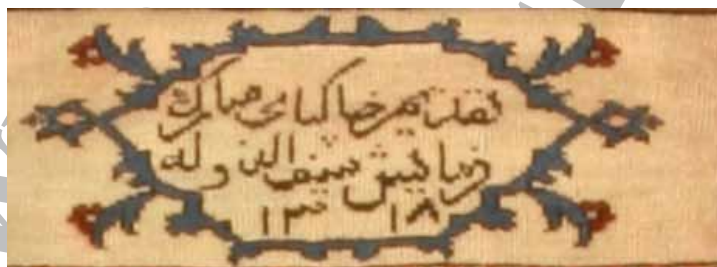 تقدیم خاکپای مبارک
فرمایش سیف الدوله
۱۳۱۸